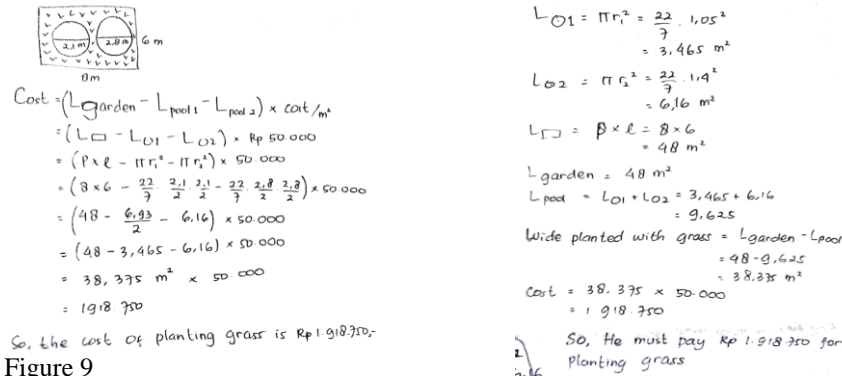 2,1 m 2,8 m 6 m
8m
Cost = (Lgarden - Lpool 1 - Lpool 2) × cost/m²
= (L□ - L○1 - L○2) × Rp 50.000
= (P×l - πr₁² - πr₂²) × 50.000
= (8×6 - 22/7 . 2,1/2 . 2,1/2 - 22/7 . 2,8/2 . 2,8/2) × 50.000
= (48 - 6,93/2 - 6,16) × 50.000
= (48 - 3,465 - 6,16) × 50.000
= 38,375 m² × 50.000
= 1918.750
So, the cost of planting grass is Rp 1.918.750,-
Figure 9
L○1 = πr₁² = 22/7 . 1,05²
= 3,465 m²
L○2 = πr₂² = 22/7 . 1,4²
= 6,16 m²
L□ = P×l = 8×6
= 48 m²
Lgarden = 48 m²
Lpool = L○1 + L○2 = 3,465 + 6,16
= 9,625
Wide planted with grass = Lgarden - Lpool
= 48 - 9,625
= 38,375 m²
Cost = 38.375 × 50.000
= 1 918.750
So, He must pay Rp 1.918.750 for
Planting grass